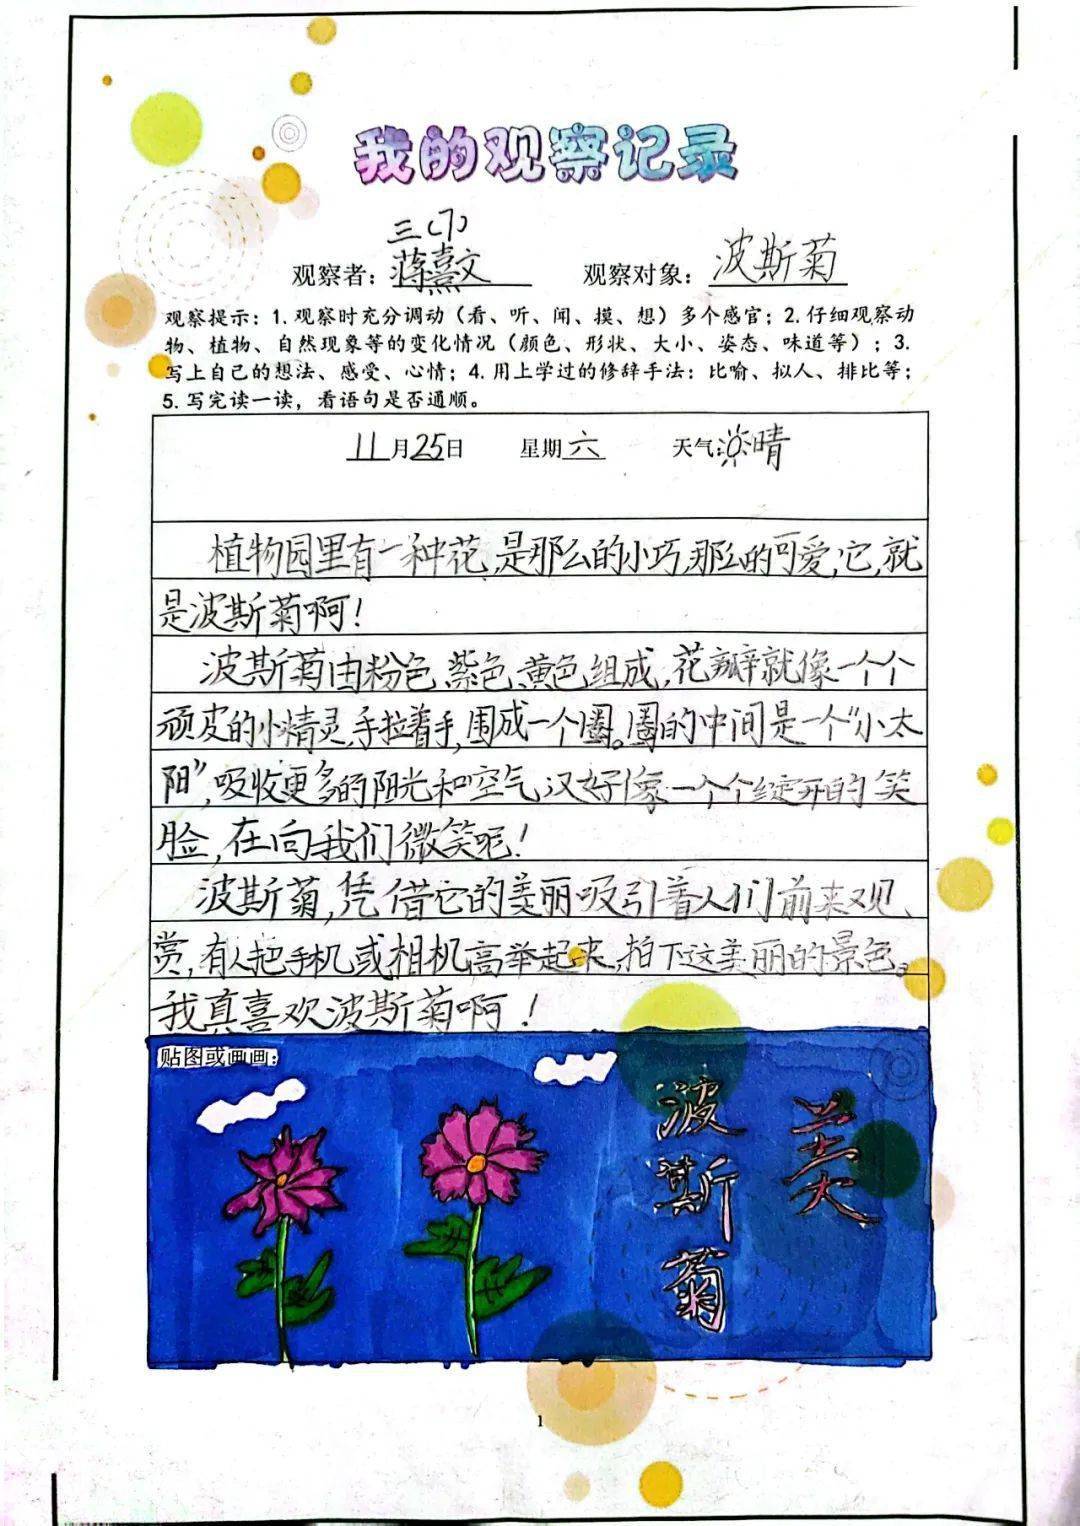 我的观察记录
三(7)
观察者：蒋熹文 观察对象：波斯菊
观察提示：1.观察时充分调动（看、听、闻、摸、想）多个感官；2.仔细观察动
物、植物、自然现象等的变化情况（颜色、形状、大小、姿态、味道等）；3.
写上自己的想法、感受、心情；4.用上学过的修辞手法：比喻、拟人、排比等；
5.写完读一读，看语句是否通顺。
11月25日 星期六 天气：晴
植物园里有一种花,是那么的小巧,那么的可爱,它,就
是波斯菊啊！
波斯菊由粉色、紫色、黄色组成,花瓣就像一个个
顽皮的小精灵,手拉着手,围成一个圈。圈的中间是一个“小太
阳”,吸收更多的阳光和空气,又好像一个个绽开的笑
脸,在向我们微笑呢！
波斯菊,凭借它的美丽吸引着人们前来观
赏,有人把手机或相机高举起来,拍下这美丽的景色。
我真喜欢波斯菊啊！
贴图或画画：
波斯菊
美
1